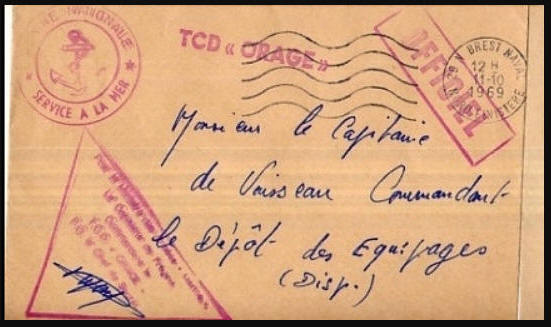 NATIONALE
SERVICE A LA MER
TCD « ORAGE »
OFFICIEL
29 N BREST NAVAL
12 H
11-10
1969
FINISTERE
Monsieur le Capitaine
de Vaisseau Commandant
le Dépôt des Equipages
(Disp.)